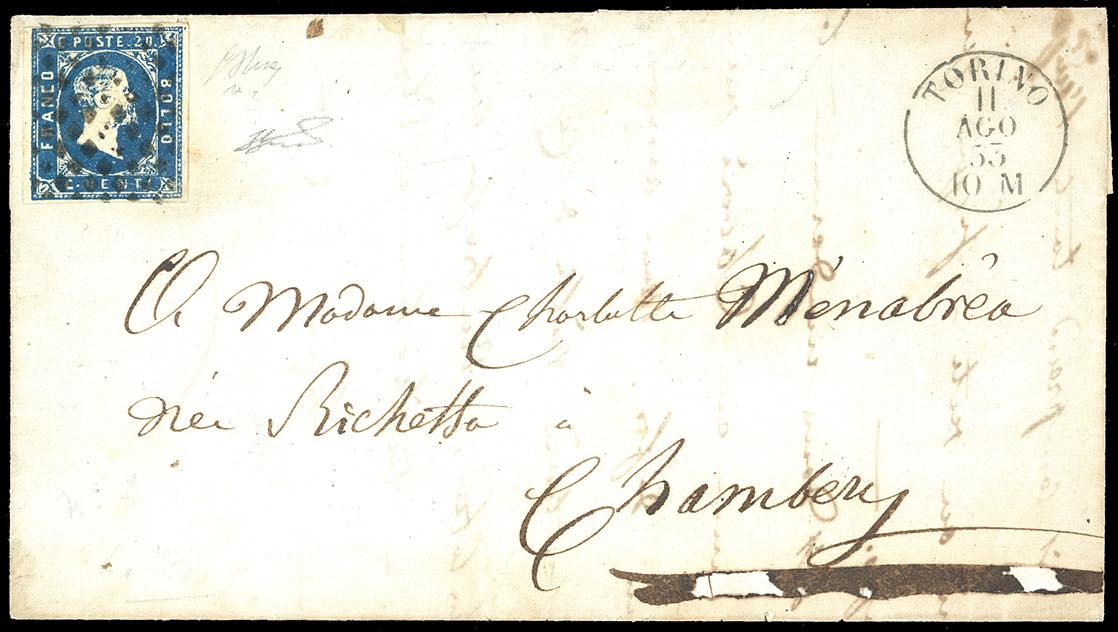 C. POSTE. 20.
FRANCO
BOLLO
C. CENTI
TORINO
11
AGO
53
10 M
A Madame Charlotte Ménabréa
née Richetta à
Chambery